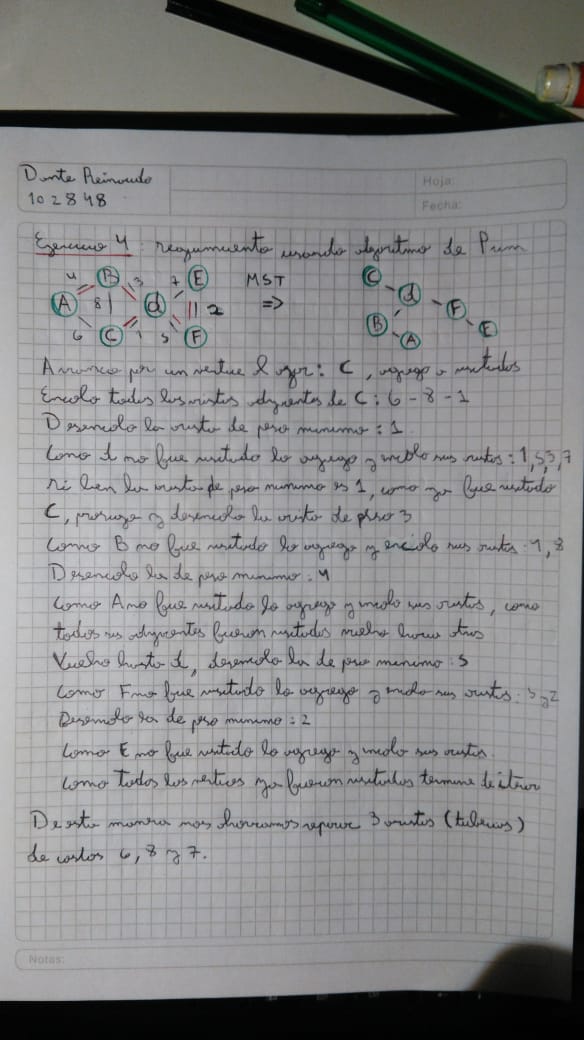 Dante Reinaudo
102848
Hoja:
Fecha:
Ejercicio 4: seguimiento usando algoritmo de Prim
4 B 3 7 E MST C
A 8 d 2 => d F
6 C 1 5 F B A E
Arranco por un vertice al azar: C, agrego a visitados
Encolo todas las aristas adyacentes de C: 6 - 8 - 1
Desencolo la arista de peso minimo: 1
Como d no fue visitado lo agrego y encolo sus aristas: 1, 5, 3, 7
si bien la arista de peso minimo es 1, como ya fue visitado
C, prosigo y desencolo la arista de peso 3
Como B no fue visitado lo agrego y encolo sus aristas: 4, 8
Desencolo la de peso minimo: 4
Como A no fue visitado lo agrego y encolo sus aristas, como
todos sus adyacentes fueron visitados vuelvo hacia atras
Vuelvo hasta d, desencolo la de peso minimo: 5
Como F no fue visitado lo agrego y encolo sus aristas: 5 y 2
Desencolo la de peso minimo: 2
Como E no fue visitado lo agrego y encolo sus aristas.
Como todos los vertices ya fueron visitados termine de iterar
De esta manera nos ahorramos reparar 3 aristas (tuberias)
de costos 6, 8 y 7.
Notas: